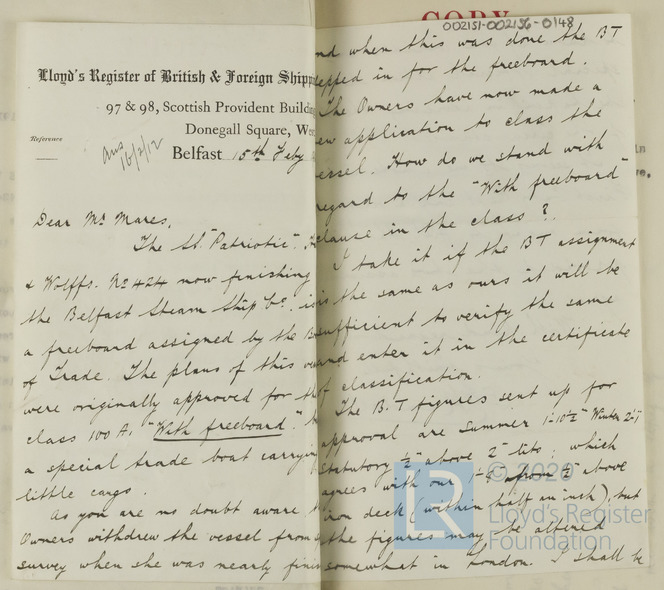 COPY
002151-002156-0148
Lloyd's Register of British & Foreign
97 & 98, Scottish Provident
Donegall Square,
Reference
Belfast 15th Feby
Ans 16/2/12
Dear Mr Mares,
The SS. "Patriotic".
& Wolff's. No 424 now finishing
the Belfast Steam Ship Co. is
a freeboard assigned by the
of Trade. The plans of this
were originally approved for
class 100 A1 "With freeboard"
a special trade boat carrying
little cargo.
As you are no doubt aware
Owners withdrew the vessel from
survey when she was nearly
and when this was done the BT
stepped in for the freeboard.
The Owners have now made a
new application to class the
vessel. How do we stand with
regard to the "With freeboard"
clause in the class?
I take it if the BT assignment
is the same as ours it will be
sufficient to verify the same
and enter it in the certificate
of classification.
The B.T figures sent up for
approval are Summer 1-10½" Winter 2-1
Statutory ½" above 2" ; which
agrees with our above
iron deck (within half an inch), but
the figures may be altered
somewhat in London. I shall be
© 2020
Lloyd's Register
Foundation
LR